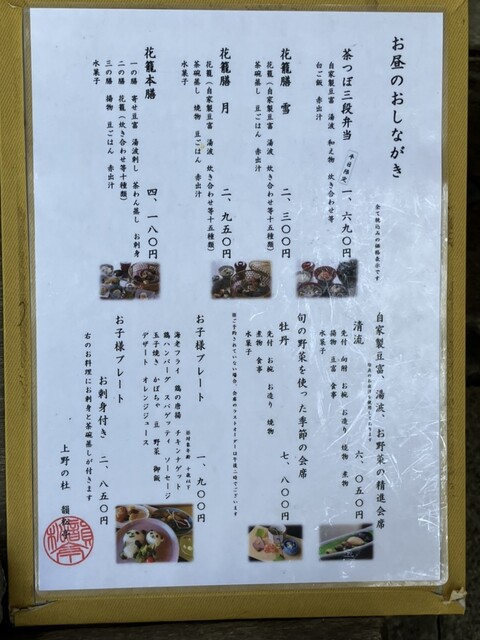 お昼のおしながき
全て税込みの価格表示です
茶つぼ三段弁当
平日限定
一、六九〇円
自家製豆富 湯波 和え物 炊き合わせ等
白ご飯 赤出汁
花籠膳 雪
二、三〇〇円
花籠(自家製豆富 湯波 炊き合わせ等十五種類)
茶碗蒸し 豆ごはん 赤出汁
花籠膳 月
二、九五〇円
花籠(自家製豆富 湯波 炊き合わせ等十五種類)
茶碗蒸し 焼物 豆ごはん 赤出汁
水菓子
花籠本膳
四、一八〇円
一の膳 寄せ豆富 湯波刺し 茶わん蒸し お刺身
二の膳 花籠(炊き合わせ等十種類)
三の膳 揚物 豆ごはん 赤出汁
水菓子
自家製豆富、湯波、お野菜の精進会席
清流
六、〇五〇円
先付 向附 お椀 お造り 焼物 煮物
揚物 豆富 食事
水菓子
旬の野菜を使った季節の会席
牡丹
七、八〇〇円
先付 お椀 お造り 焼物
煮物 食事
水菓子
お子様プレート
一、九〇〇円
海老フライ 鶏の唐揚 チキンナゲット
鶏ハンバーグ スパゲッティ ソーセージ
玉子焼き かぼちゃ 豆 野菜 御飯
デザート オレンジジュース
お子様プレート
お刺身付き 二、八五〇円
右のお料理にお刺身と茶碗蒸しが付きます
上野の杜 韻松亭